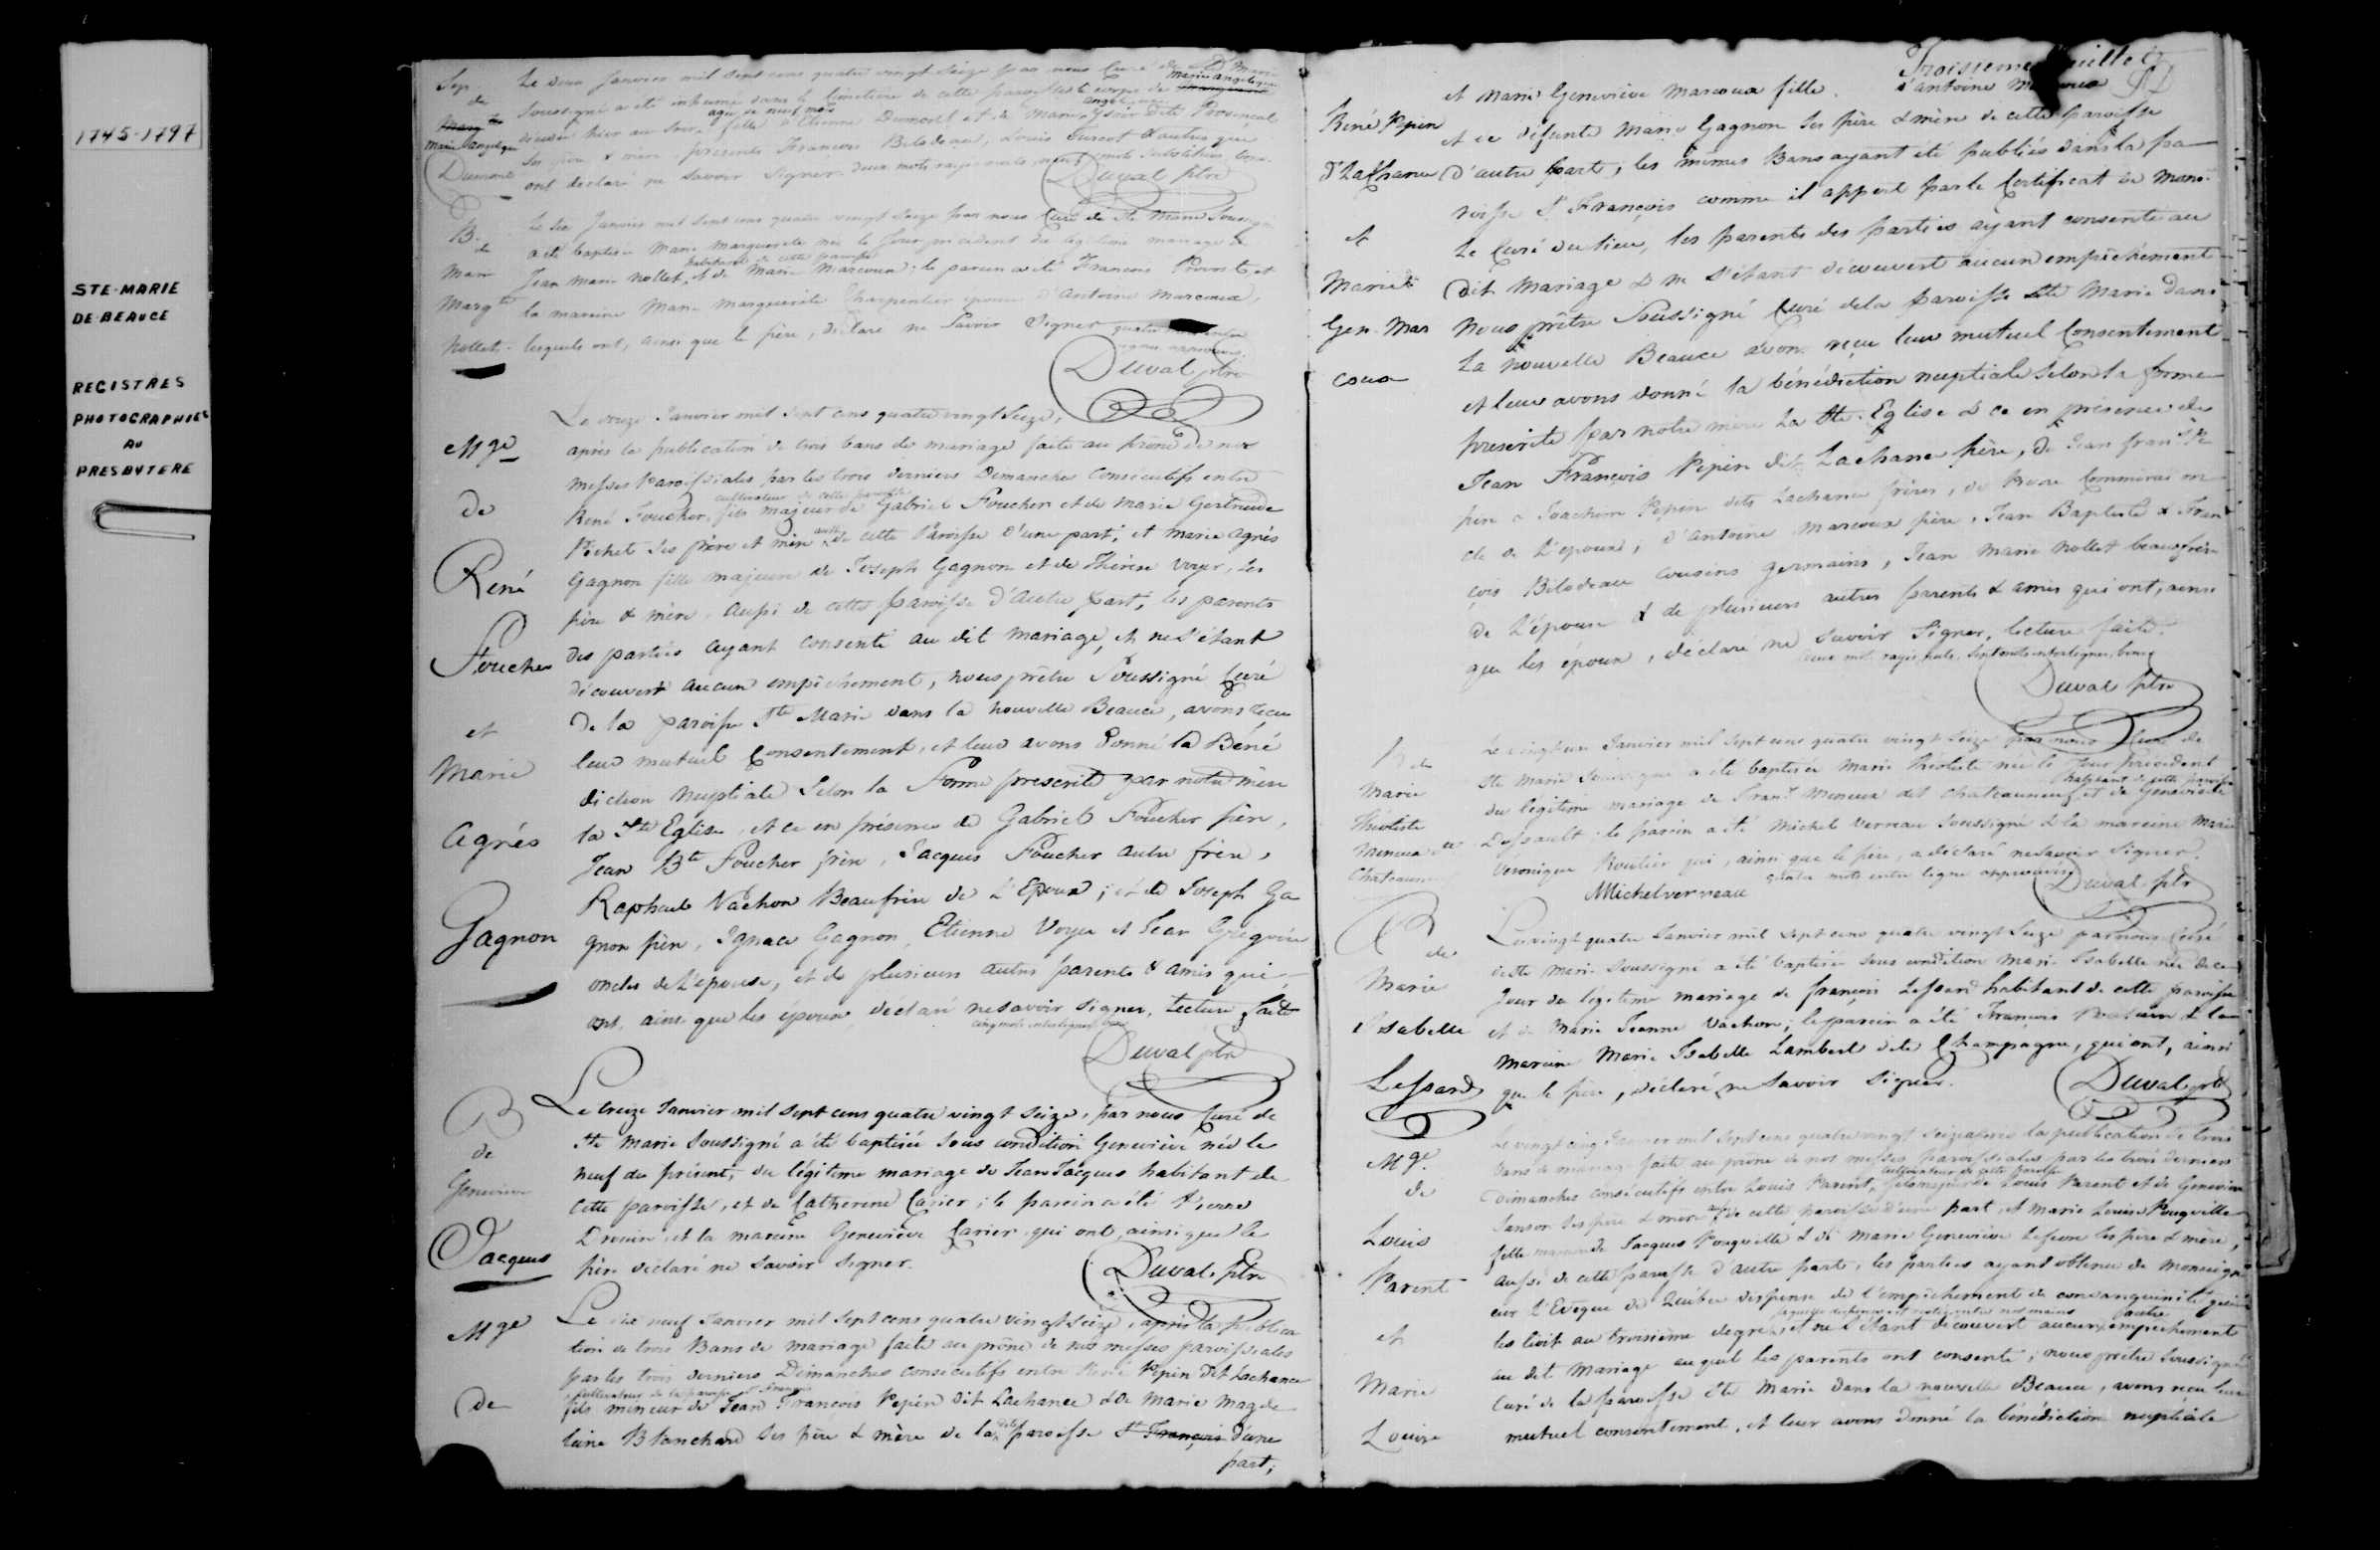 1745-1797
STE-MARIE
DE-BEAUCE
REGISTRES
PHOTOGRAPHIÉS
AU
PRESBYTERE
Sep
de
Marie angelique
Dumont
Le deux Janvier mil sept cens quatre vingt seize par nous Curé de Ste Marie
Soussigné a été inhumé dans le cimetière de cette paroisse le corps de Marie angelique
agée de neuf mois
décédée hier au soir fille d'Etienne Dumont et de Marie dite Provencal
Ses père & mère presents François Bilodeau, Louis Turcot & autres qui
ont déclaré ne savoir signer. deux mots rayés nuls
Duval ptre
B.
de
Marie
Margte
Nollet
Le six Janvier mil sept cens quatre vingt seize par nous Curé de Ste Marie Soussigné
a été baptisée Marie Marguerite née le jour précédent du légitime mariage de
habitant de cette paroisse
Jean Marie Nollet, & de Marie Marcoux; le parein a été François et
la mareine Marie Marguerite Charpentier épouse d'Antoine Marcoux,
lesquels ont, ainsi que le père, déclaré ne Savoir Signer
Duval ptre
Mge
de
René
Foucher
et
Marie
Agnés
Gagnon
Le onze Janvier mil sept cens quatre vingt Seize,
après la publication de trois bans de mariage faite au prône de nos
messes Paroissiales par les trois derniers Dimanches consécutifs entre
cultivateur de cette paroisse
René Foucher, fils majeur de Gabriel Foucher et de Marie Gertrude
Pichet ses père et mère de cette Paroisse d'une part; et marie Agnés
Gagnon fille majeure de Joseph Gagnon et de Thérèse Voyer, ses
père & mère aussi de cette paroisse d'autre part, les parents
des parties ayant consenti au dit mariage, et ne s'étant
découvert aucun empêchement, nous prêtre Soussigné Curé
de la paroisse Ste Marie dans la nouvelle Beauce, avons reçu
leur mutuel Consentement, et leur avons donné la Béné
diction Nuptiale Selon la Forme prescrite par notre mère
la Ste Eglise, et ce en présence de Gabriel Foucher père,
Jean Bte Foucher frère, Jacques Foucher autre frère,
Raphael Vachon Beaufrère de L'Epoux; et de Joseph Ga
gnon père, Ignace Gagnon, Etienne Voyer et Jean Gregoire
oncles de L'epouse, et de plusieurs autres parents & amis qui
ont, ainsi que les époux déclaré ne savoir Signer, Lecture faite
cinq mots interlignés bons
Duval ptre
B
de
Genevieve
Jacques
Le treize Janvier mil sept cens quatre vingt seize, par nous Curé de
Ste Marie Soussigné a été baptisée sous condition Geneviève née le
neuf du présent, du légitime mariage de Jean Jacques habitant de
cette paroisse, et de Catherine Carier; le parein a été Pierre
Drouin et la mareine Geneviève Carier qui ont, ainsi que le
père déclaré ne Savoir Signer.
Duval ptre
Mge
de
Le dix neuf Janvier mil sept cens quatre vingt seize, après la publica
tion de trois Bans de mariage faite au prône de nos messes paroissiales
par les trois derniers Dimanches consécutifs entre René Pepin dit Lachance
cultivateur de la paroisse St François
fils mineur de Jean François Pepin dit Lachance & de Marie Magde
laine Blanchard Ses père & mère de la dite paroisse St François d'une
part;
Troisieme feuille
René Pepin
dt Lachance
et
Marie
Gen. Mar
coux
et Marie Geneviève Marcoux fille d'antoine Marcoux
et de défunte Marie Gagnon Ses père & mère de cette paroisse
d'autre part; les mêmes Bans ayant été publiés dans la pa
roisse St François comme il appert par le Certificat de Monsr
Le Curé du lieu, les parents des parties ayant consenti au
dit Mariage & ne s'étant découvert aucun empêchement
Nous prêtre Soussigné Curé de la paroisse Ste Marie dans
La nouvelle Beauce avons reçu leur mutuel Consentement
et leur avons donné la bénédiction nuptiale Selon la forme
prescrite par notre mère La Ste Eglise & ce en présence de
Jean François Pepin dit Lachance père, de Jean Frans Pe
pin & Joachim Pepin dits Lachance frères, de
cle de L'epoux; d'Antoine Marcoux père, Jean Baptiste & Fran
çois Bilodeau cousins germains, Jean Marie Nollet beaufrère
de L'épouse & de plusieurs autres parents & amis qui ont, ainsi
que les époux, déclaré ne savoir Signer, lecture faite.
deux mots rayés nuls, sept mots interlignes, bons
Duval ptre
B de
Marie
Théotiste
Meneux dt
Chateauneuf
Le vingt un Janvier mil sept cens quatre vingt seize par nous Curé de
Ste Marie Soussigné a été baptisée Marie Théotiste née le jour précédent
habitant de cette paroisse
du légitime mariage de Frans Meneux dit Chateauneuf, et de Geneviève
Dussault: le parein a été Michel Verreau Soussigné & la mareine Marie
Véronique Routier qui, ainsi que le père, a déclaré ne savoir Signer.
quatre mots entre ligne approuvés
Michel verreau
Duval ptr
B
de
Marie
Isabelle
Lessard
Le vingt quatre Janvier mil sept cens quatre vingt Seize par nous Curé
de Ste Marie Soussigné a été baptisée sous condition Marie Isabelle née de ce
jour du légitime mariage de François Lessard habitant de cette paroisse
et de Marie Jeanne Vachon; le parein a été François & la
Mareine Marie Isabelle Lambert dite Champagne, qui ont, ainsi
que le père, déclaré ne Savoir Signer.
Duval ptre
Mge
de
Louis
Parent
et
Marie
Louise
Le vingt cinq Janvier mil sept cens quatre vingt seize après la publication de trois
bans de mariage faite au prône de nos messes paroissiales par les trois derniers
cultivateur de cette paroisse
Dimanches consécutifs entre Louis Parent, fils majeur de Louis Parent et de Geneviève
Sanson Ses père & mère de cette paroisse d'une part, et Marie Louise Pouqville
fille mineure de Jacques Pouqville & de Marie Geneviève Lefevre ses père & mère,
aussi de cette paroisse d'autre part; les parties ayant obtenu de Monseigne
eur L'Evêque de Québec dispense de l'empêchement de consanguinité qui
les lioit au troisième degré, et ne s'étant découvert aucun autre empêchement
au dit Mariage auquel les parents ont consenti; nous prêtre Soussigné
Curé de la paroisse Ste Marie dans la nouvelle Beauce, avons reçu leur
mutuel consentement, et leur avons donné la bénédiction nuptiale